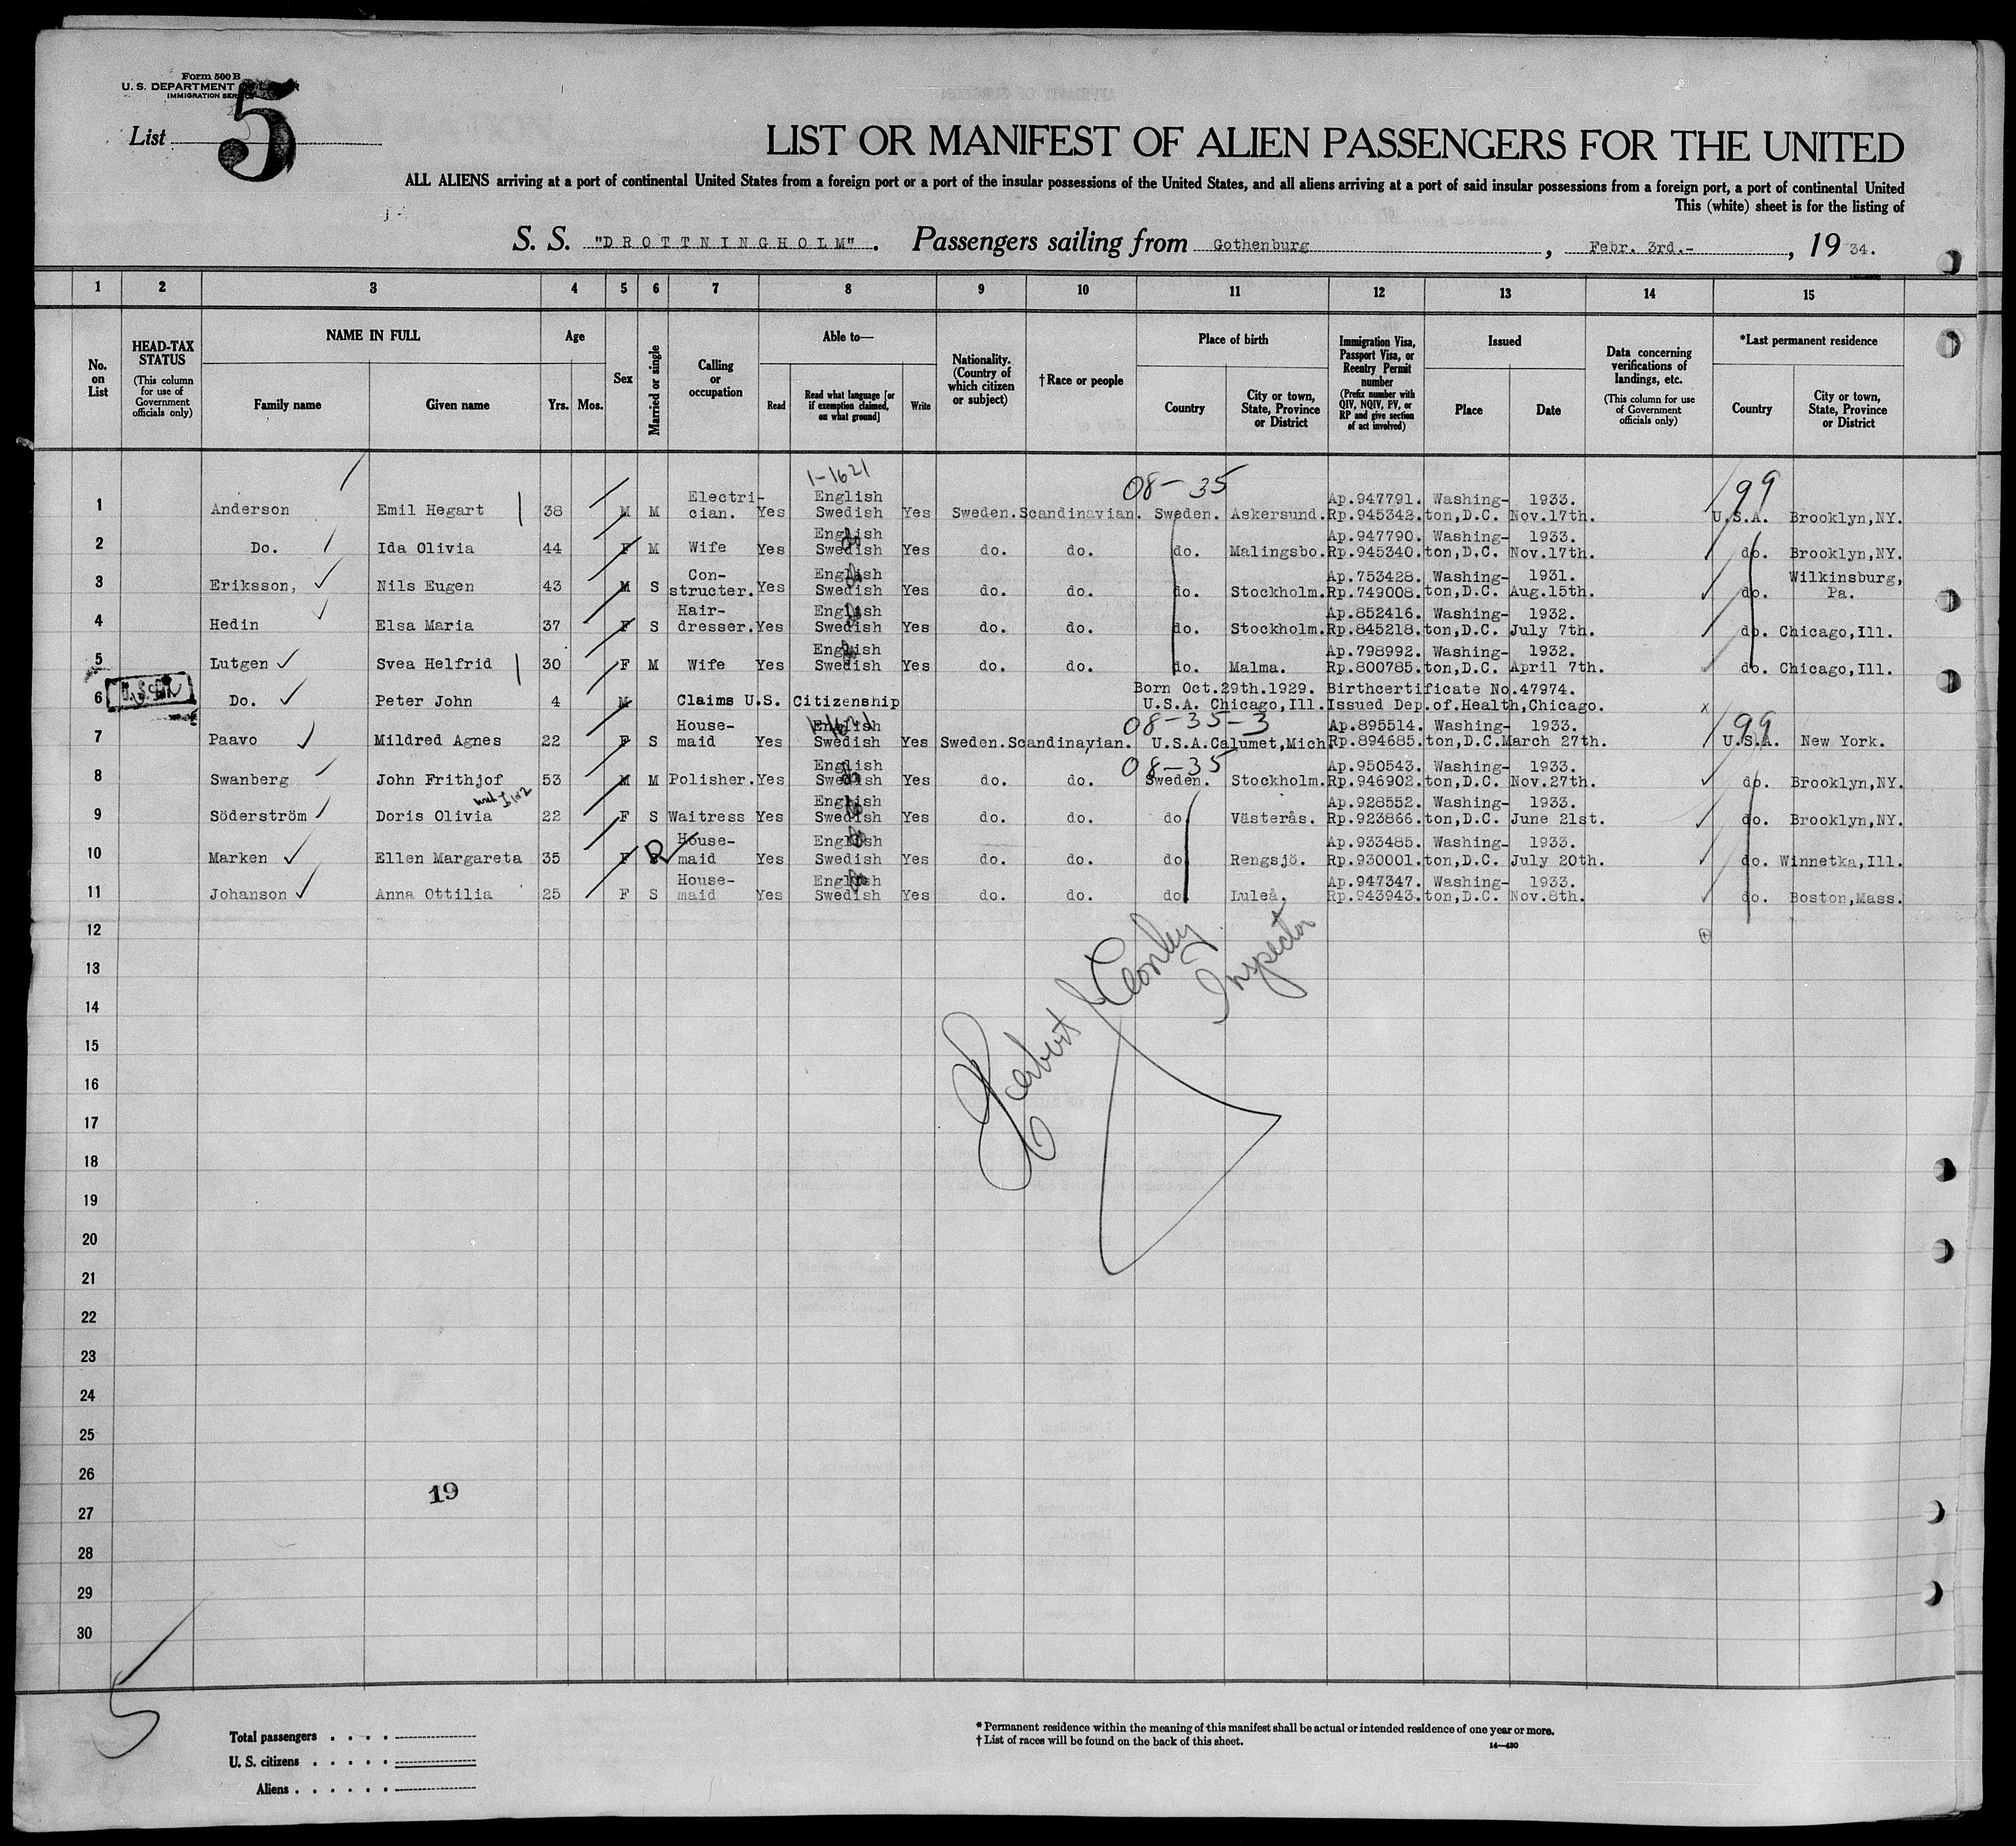 Form 500 B
U. S. DEPARTMENT
IMMIGRATION
List 5
LIST OR MANIFEST OF ALIEN PASSENGERS FOR THE UNITED
ALL ALIENS arriving at a port of continental United States from a foreign port or a port of the insular possessions of the United States, and all aliens arriving at a port of said insular possessions from a foreign port, a port of continental United
This (white) sheet is for the listing of
S. S. "DROTTNINGHOLM". Passengers sailing from Gothenburg, Febr. 3rd.-, 19 34.
1 2 3 4 5 6 7 8 9 10 11 12 13 14 15
No. on List
HEAD-TAX STATUS
(This column for use of Government officials only)
NAME IN FULL
Family name Given name
Age
Yrs. Mos.
Sex
Married or single
Calling or occupation
Able to—
Read
Read what language [or if exemption claimed, on what ground]
Write
Nationality. (Country of which citizen or subject)
† Race or people
Place of birth
Country
City or town, State, Province or District
Immigration Visa, Passport Visa, or Reentry Permit number
(Prefix number with QIV, NQIV, PV, or RP and give section of act involved)
Issued
Place Date
Data concerning verifications of landings, etc.
(This column for use of Government officials only)
*Last permanent residence
Country
City or town, State, Province or District
1-1621 08-35 99
Electri- English Ap.947791. Washing- 1933.
1 Anderson Emil Hegart 38 M M cian. Yes Swedish Yes Sweden. Scandinavian. Sweden. Askersund. Rp.945342. ton,D.C. Nov.17th. U.S.A. Brooklyn,NY.
English Ap.947790. Washing- 1933.
2 Do. Ida Olivia 44 F M Wife Yes Swedish Yes do. do. do. Malingsbo. Rp.945340. ton,D.C. Nov.17th. do. Brooklyn,NY.
Con- English Ap.753428. Washing- 1931. Wilkinsburg,
3 Eriksson, Nils Eugen 43 M S structer. Yes Swedish Yes do. do. do. Stockholm. Rp.749008. ton,D.C. Aug.15th. do. Pa.
Hair- English Ap.852416. Washing- 1932.
4 Hedin Elsa Maria 37 F S dresser. Yes Swedish Yes do. do. do. Stockholm. Rp.845218. ton,D.C. July 7th. do. Chicago,Ill.
English Ap.798992. Washing- 1932.
5 Lutgen Svea Helfrid 30 F M Wife Yes Swedish Yes do. do. do. Malma. Rp.800785. ton,D.C. April 7th. do. Chicago,Ill.
Born Oct.29th.1929. Birthcertificate No.47974.
6 Do. Peter John 4 M Claims U.S. Citizenship U.S.A. Chicago,Ill. Issued Dep.of.Health,Chicago. x
1-1621 08-35-3 99
House- English Ap.895514. Washing- 1933.
7 Paavo Mildred Agnes 22 F S maid Yes Swedish Yes Sweden. Scandinavian. U.S.A. Calumet,Mich Rp.894685. ton,D.C. March 27th. U.S.A. New York.
08-35
English Ap.950543. Washing- 1933.
8 Swanberg John Frithjof 53 M M Polisher. Yes Swedish Yes do. do. Sweden. Stockholm. Rp.946902. ton,D.C. Nov.27th. do. Brooklyn,NY.
English Ap.928552. Washing- 1933.
9 Söderström Doris Olivia 22 F S Waitress Yes Swedish Yes do. do. do Västerås. Rp.923866. ton,D.C. June 21st. do. Brooklyn,NY.
House- English Ap.933485. Washing- 1933.
10 Marken Ellen Margareta 35 F maid Yes Swedish Yes do. do. do Rengsjö. Rp.930001. ton,D.C. July 20th. do. Winnetka,Ill.
House- English Ap.947347. Washing- 1933.
11 Johanson Anna Ottilia 25 F S maid Yes Swedish Yes do. do. do Luleå. Rp.943943. ton,D.C. Nov.8th. do. Boston,Mass.
12
13
14
15
16
17
18
19
20
21
22
23
24
25
26
27
28
29
30
Herbert Conley
Inspector
19
5
Total passengers
U. S. citizens
Aliens
* Permanent residence within the meaning of this manifest shall be actual or intended residence of one year or more.
† List of races will be found on the back of this sheet.
14—430